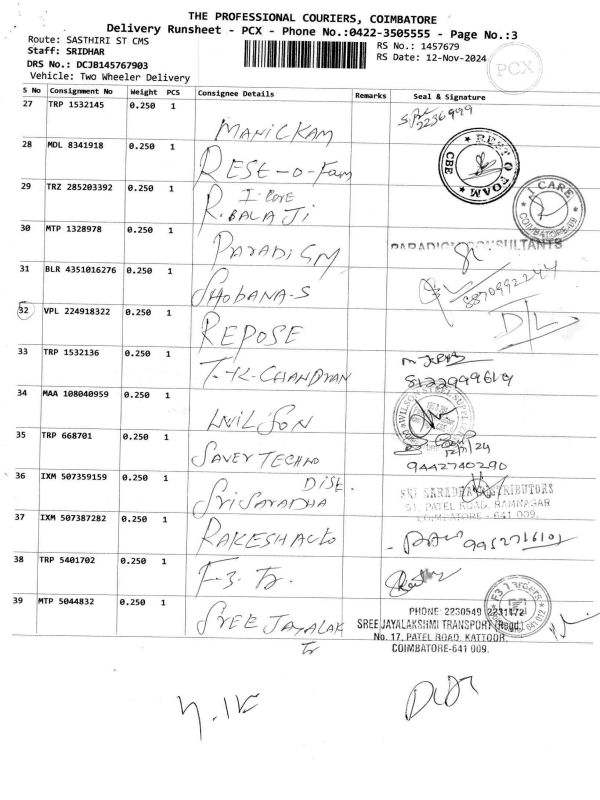 THE PROFESSIONAL COURIERS, COIMBATORE
Delivery Runsheet - PCX - Phone No.:0422-3505555 - Page No.:3
Route: SASTHIRI ST CMS
RS No.: 1457679
Staff: SRIDHAR
RS Date: 12-Nov-2024
DRS No.: DCJB145767903
PCX
Vehicle: Two Wheeler Delivery
S No Consignment No Weight PCS Consignee Details Remarks Seal & Signature
27 TRP 1532145 0.250 1 MANICKAM 2236999
28 MDL 8341918 0.250 1 RESE-O-Fam REST O FOAM CBE
29 TRZ 285203392 0.250 1 I Care
R. BALAJI I CARE COIMBATORE-09
30 MTP 1328978 0.250 1 PARADIGM PARADIGM CONSULTANTS
31 BLR 4351016276 0.250 1 SHOBANA-S 8870992244
32 VPL 224918322 0.250 1 REPOSE D/L
33 TRP 1532136 0.250 1 T.K. CHANDRAN 8122949619
34 MAA 108040959 0.250 1 WILSON
35 TRP 668701 0.250 1 SANEY TECHNO 12/11/24
9442740290
36 IXM 507359159 0.250 1 Dist.
SRI SARADHA SRI SARADHA DISTRIBUTORS
51, PATEL ROAD, RAMNAGAR
COIMBATORE - 641 009.
37 IXM 507387282 0.250 1 RAKESH AUTO 9952716101
38 TRP 5401702 0.250 1 F-3. Tr.
39 MTP 5044832 0.250 1 SREE JAYALAK Tr
F3 Traders 641 012
PHONE: 2230549 2231172
SREE JAYALAKSHMI TRANSPORT (Regd.)
No. 17, PATEL ROAD, KATTOOR,
COIMBATORE-641 009.